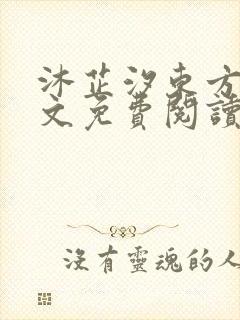 沐芷汐東方
文免費閱讀
沒有靈魂的人